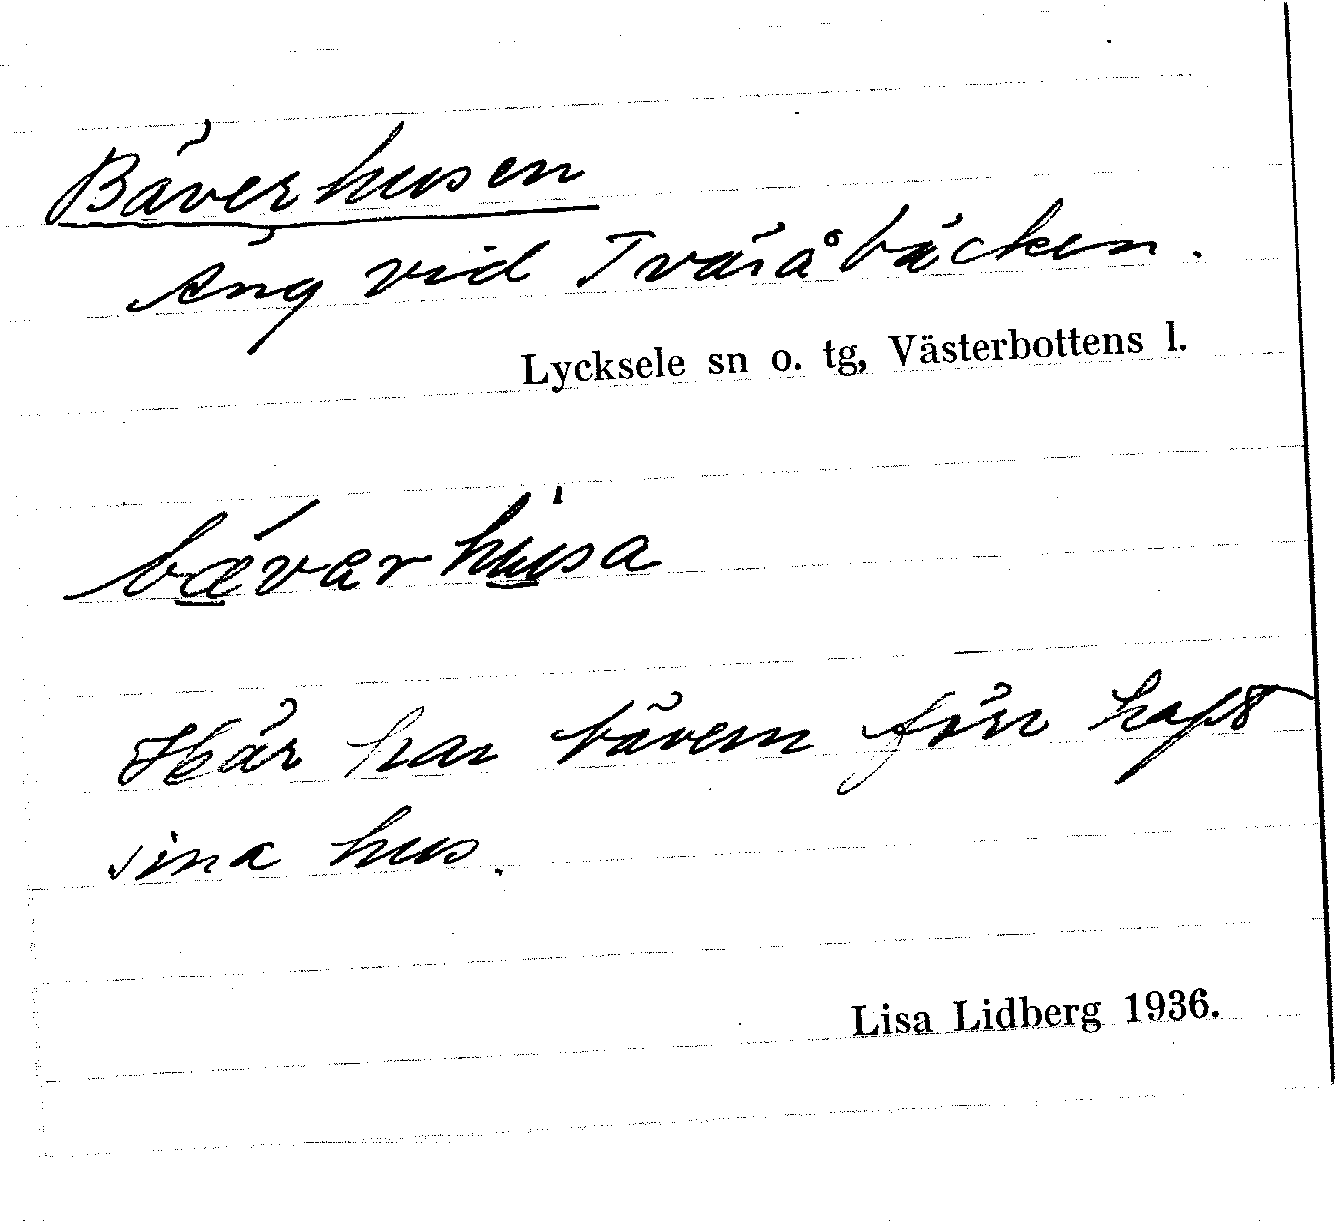 Bäverhusen
Äng vid Tväråbäcken.
Lycksele sn o. tg, Västerbottens l.
bævərhu̱sa
Här har bävern förr haft
sina hus.
Lisa Lidberg 1936.